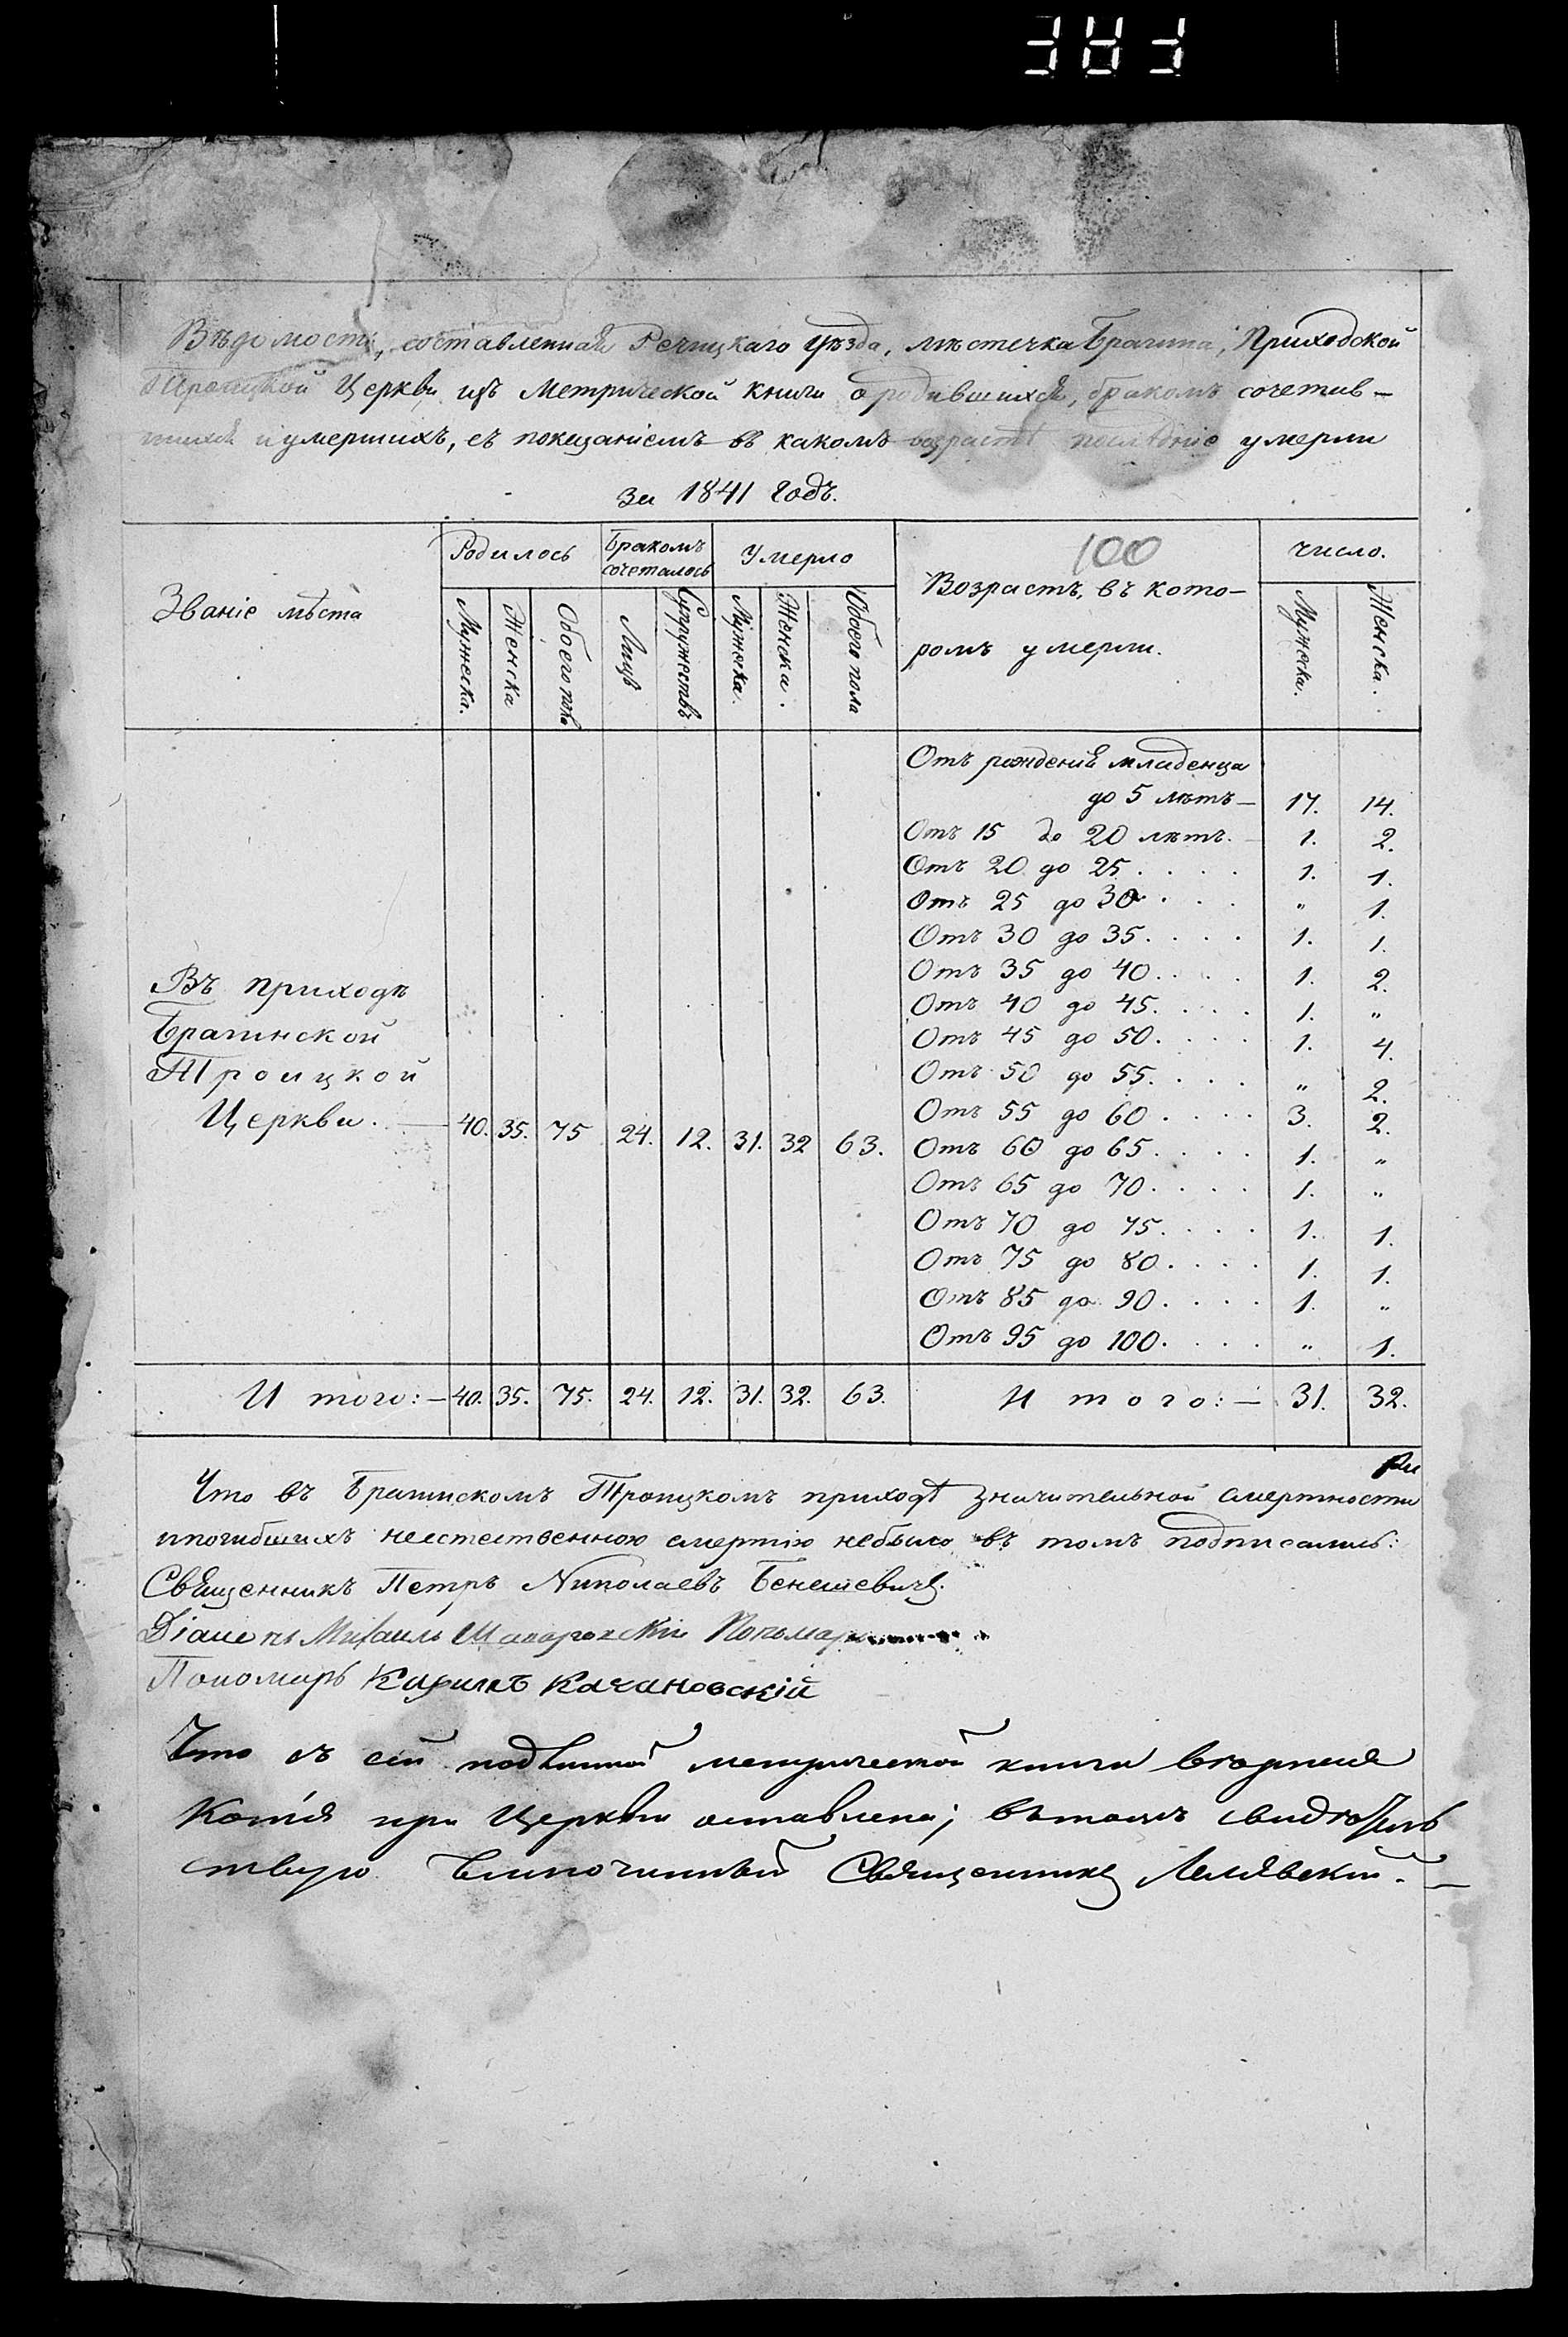 Вѣдомость, составленная Речицкаго уѣзда, мѣстечка Брагина, Приходской
Троицкой Церкви изъ Метрической книги о родившихся, бракомъ сочетав-
шихся и умершихъ, съ показаніемъ въ какомъ возрастѣ послѣдніе умерли
за 1841 годъ.
Званіе мѣста
Родилось
Бракомъ сочеталось
Умерло
100
Возрастъ, въ кото-
ромъ умерли.
число.
Мужеска.
Женска
Обоего пола
Лицъ
Супружествъ
Мужеска.
Женска.
Обоего пола
Мужеска.
Женска.
Отъ рожденія младенца
до 5 лѣтъ— 17. 14.
Отъ 15 до 20 лѣтъ. 1. 2.
Отъ 20 до 25. . . . 1. 1.
Отъ 25 до 30. . . . " 1.
Отъ 30 до 35. . . . 1. 1.
Отъ 35 до 40. . . . 1. 2.
Отъ 40 до 45. . . . 1. "
Отъ 45 до 50. . . . 1. 4.
Отъ 50 до 55. . . . " 2.
Отъ 55 до 60. . . . 3. 2.
Отъ 60 до 65. . . . 1. "
Отъ 65 до 70. . . . 1. "
Отъ 70 до 75. . . . 1. 1.
Отъ 75 до 80. . . . 1. 1.
Отъ 85 до 90. . . . 1. "
Отъ 95 до 100. . . . " 1.
Въ приходѣ
Брагинской
Троицкой
Церкви. — 40. 35. 75 24. 12. 31. 32 63.
И того:— 40. 35. 75. 24. 12. 31. 32. 63. И того:— 31. 32.
Что въ Брагинскомъ Троицкомъ приходѣ значительной смертности
и погибшихъ неестественною смертію небыло въ томъ подписались:
Священникъ Петръ Николаевъ Бенешевичъ.
Діаконъ Михаилъ Пономарь
Пономарь Кириллъ Качановскій
Что съ сей подлинной метрической книги вѣрная
Копія при Церкви оставлена; въ томъ свидѣтель
ствую Благочинный Священникъ Лелявскій.—